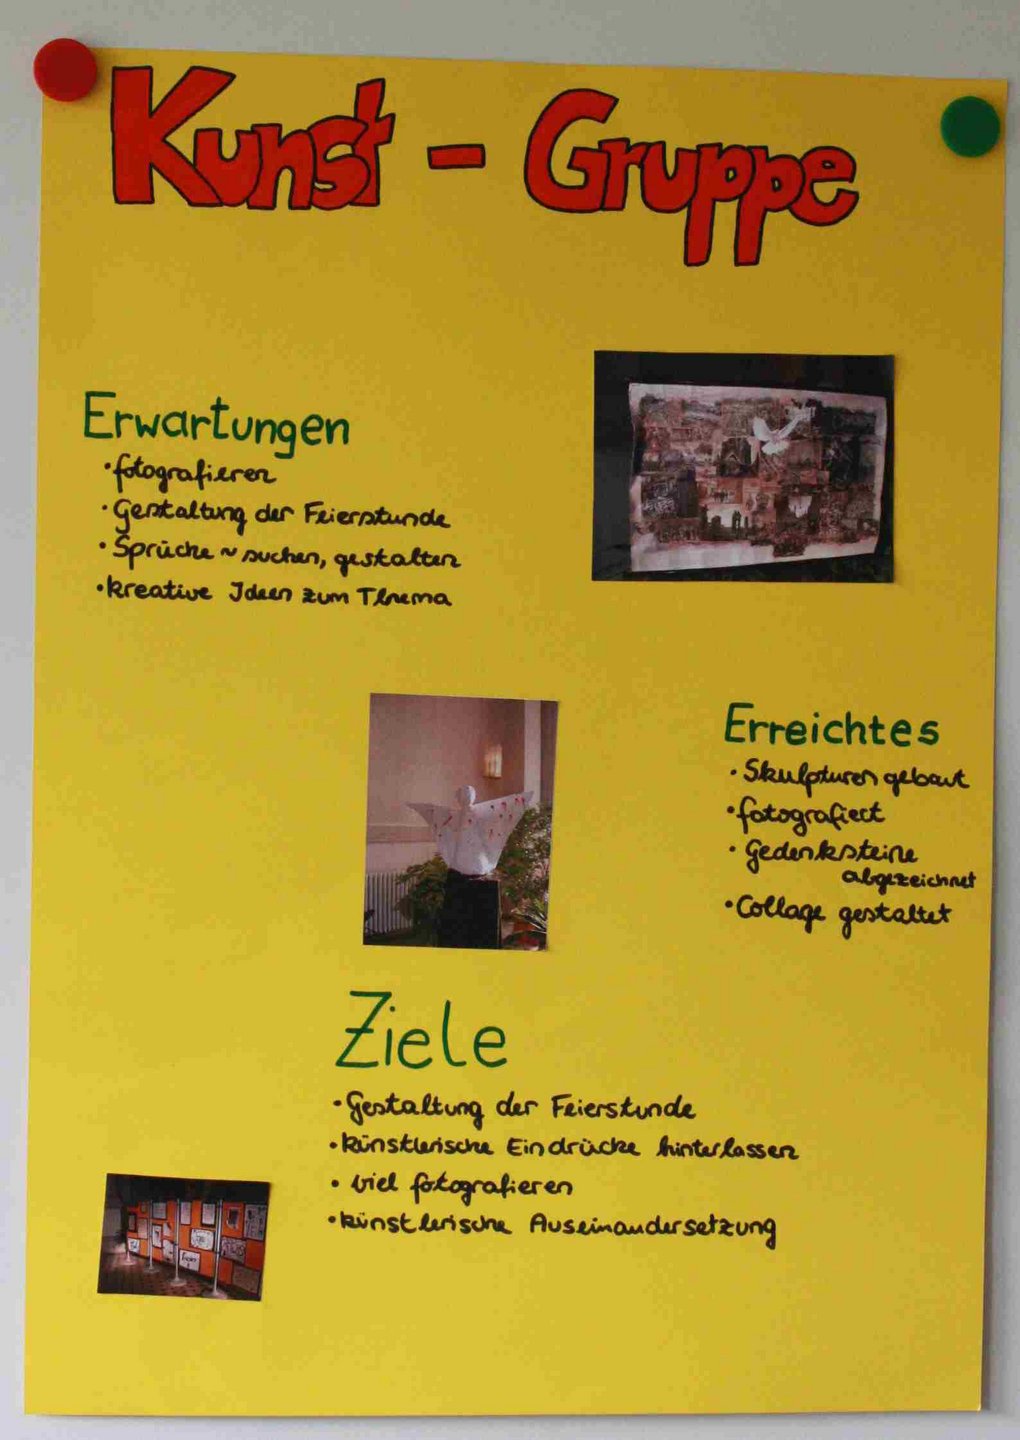 Kunst - Gruppe
Erwartungen
• fotografieren
• Gestaltung der Feierstunde
• Sprüche ~ suchen, gestalten
• kreative Ideen zum Thema
Erreichtes
• Skulpturen gebaut
• fotografiert
• Gedenksteine
abgezeichnet
• Collage gestaltet
Ziele
• Gestaltung der Feierstunde
• künstlerische Eindrücke hinterlassen
• viel fotografieren
• künstlerische Auseinandersetzung